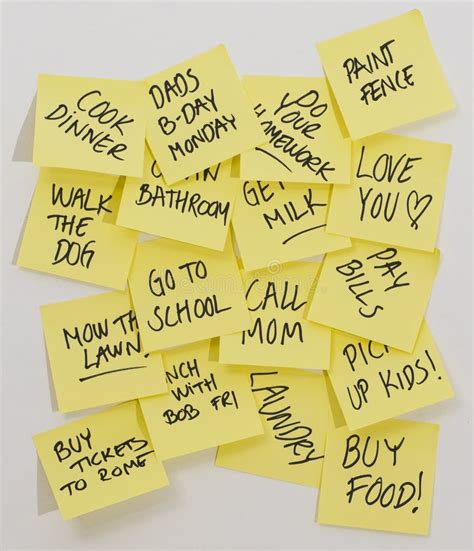 COOK
DINNER
DADS
B-DAY
MONDAY
DO
YOUR
HOMEWORK
PAINT
FENCE
WALK
THE
DOG
BATHROOM
GET
MILK
LOVE
YOU♡
GO TO
SCHOOL
CALL
MOM
PAY
BILLS
MOW THE
LAWN
WITH
BOB FRI
LAUNDRY
PICK
UP KIDS!
BUY
TICKETS
TO ROME
BUY
FOOD!